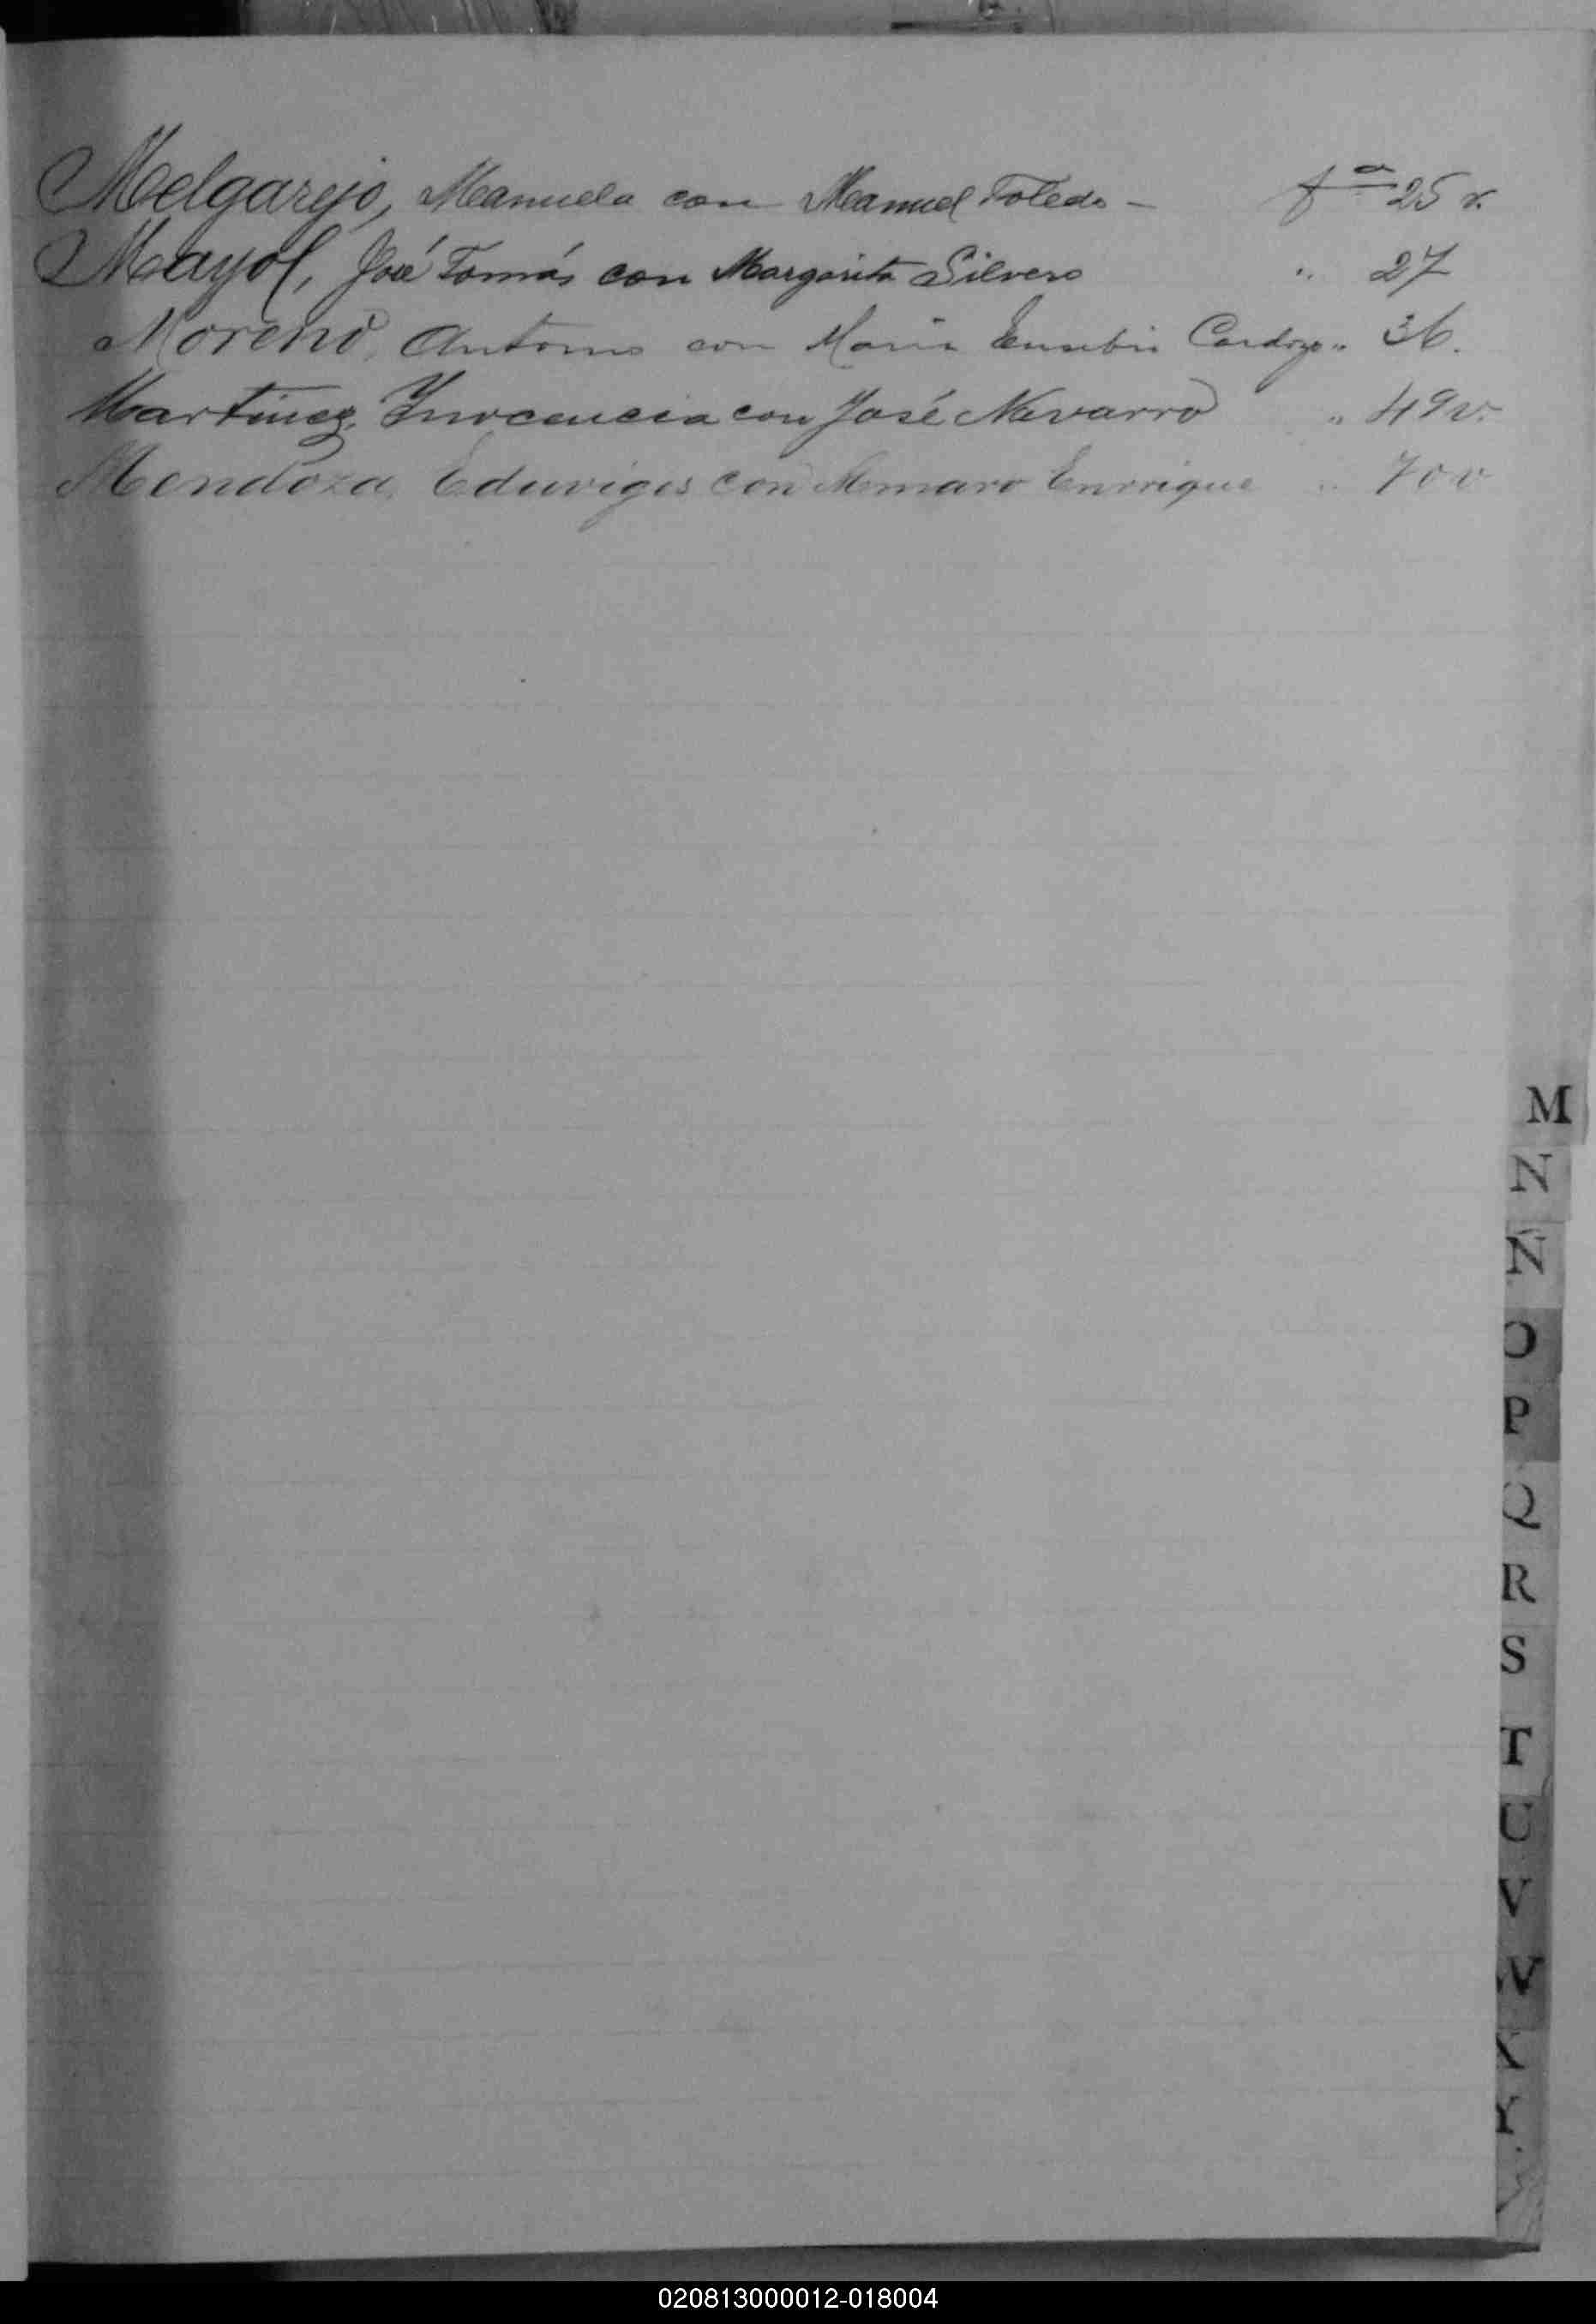 Melgarejo, Manuela con Manuel Toledo - fª 25 v.
Mayol, José Tomás con Margarita Silvero " 27
Moreno, Antonio con Maria Eusebia Cardozo " 36.
Martinez, Inocencia con José Navarro " 49 v.
Mendoza, Eduviges con Enrrique " 70 v
M
N
Ñ
O
P
Q
R
S
T
U
V
W
Y
020813000012-018004